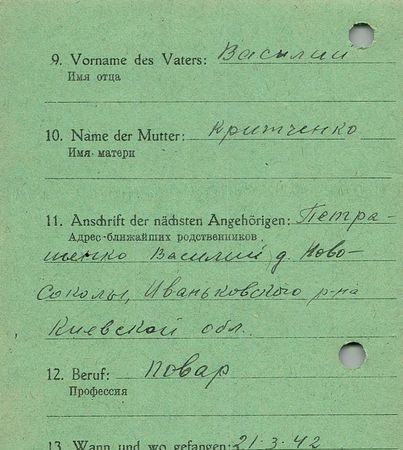 9. Vorname des Vaters: Василий
Имя отца
10. Name der Mutter: Критченко
Имя матери
11. Anschrift der nächsten Angehörigen: Петра-
Адрес ближайших родственников
шенко Василий д. Ново-
Соколы, Иваньковского р-на
Киевской обл.
12. Beruf: Повар
Профессия
13. Wann und wo gefangen: 21.3.42